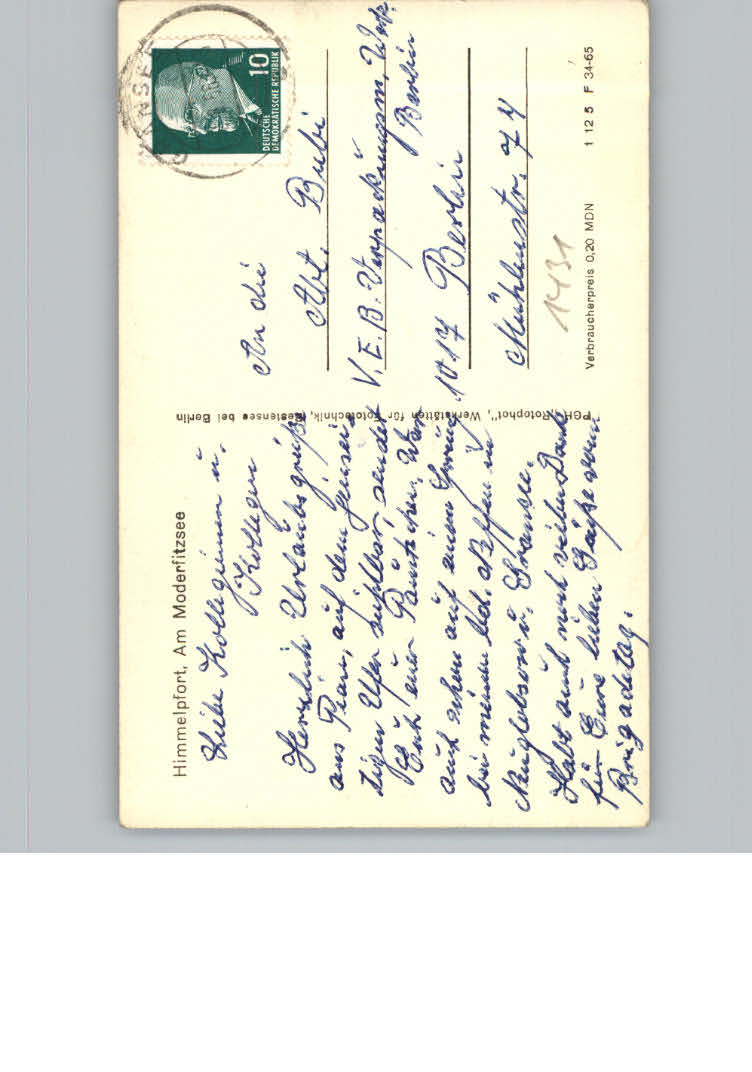 Himmelpfort, Am Moderfitzsee
Liebe Kolleginnen u.
Kollegen
Herzlich Urlaubsgrüße
aus Pian, auf dem jensei-
tigen Ufer sichtbar, sendet
Euch euer Paulchen. War
auch schon auf einen Sprung
bei meinem Neffen in
Neuglobsow u. Gransee.
Habt auch noch vielen Dank
für Eure lieben Grüße vom
Brigadetag.
PGH „Rotophot", Werkstätten für Fototechnik, Bestensee bei Berlin
GRANSEE
10
DEUTSCHE
DEMOKRATISCHE REPUBLIK
An die
Abt. Bubi
V.E.B. Verpackungsm. Werk.
Berlin
1017 Berlin
Mühlenstr. 74
1431
Verbraucherpreis 0,20 MDN
1 12 5 F 34-65